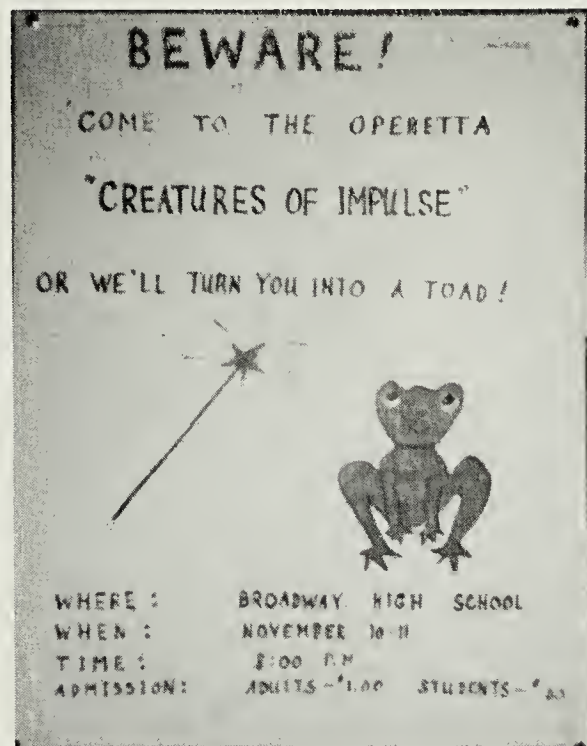 BEWARE!
COME TO THE OPERETTA
"CREATURES OF IMPULSE"
OR WE'LL TURN YOU INTO A TOAD!
WHERE: BROADWAY HIGH SCHOOL
WHEN: NOVEMBER 10-11
TIME: 8:00 P.M
ADMISSION: ADULTS-$1.00 STUDENTS-